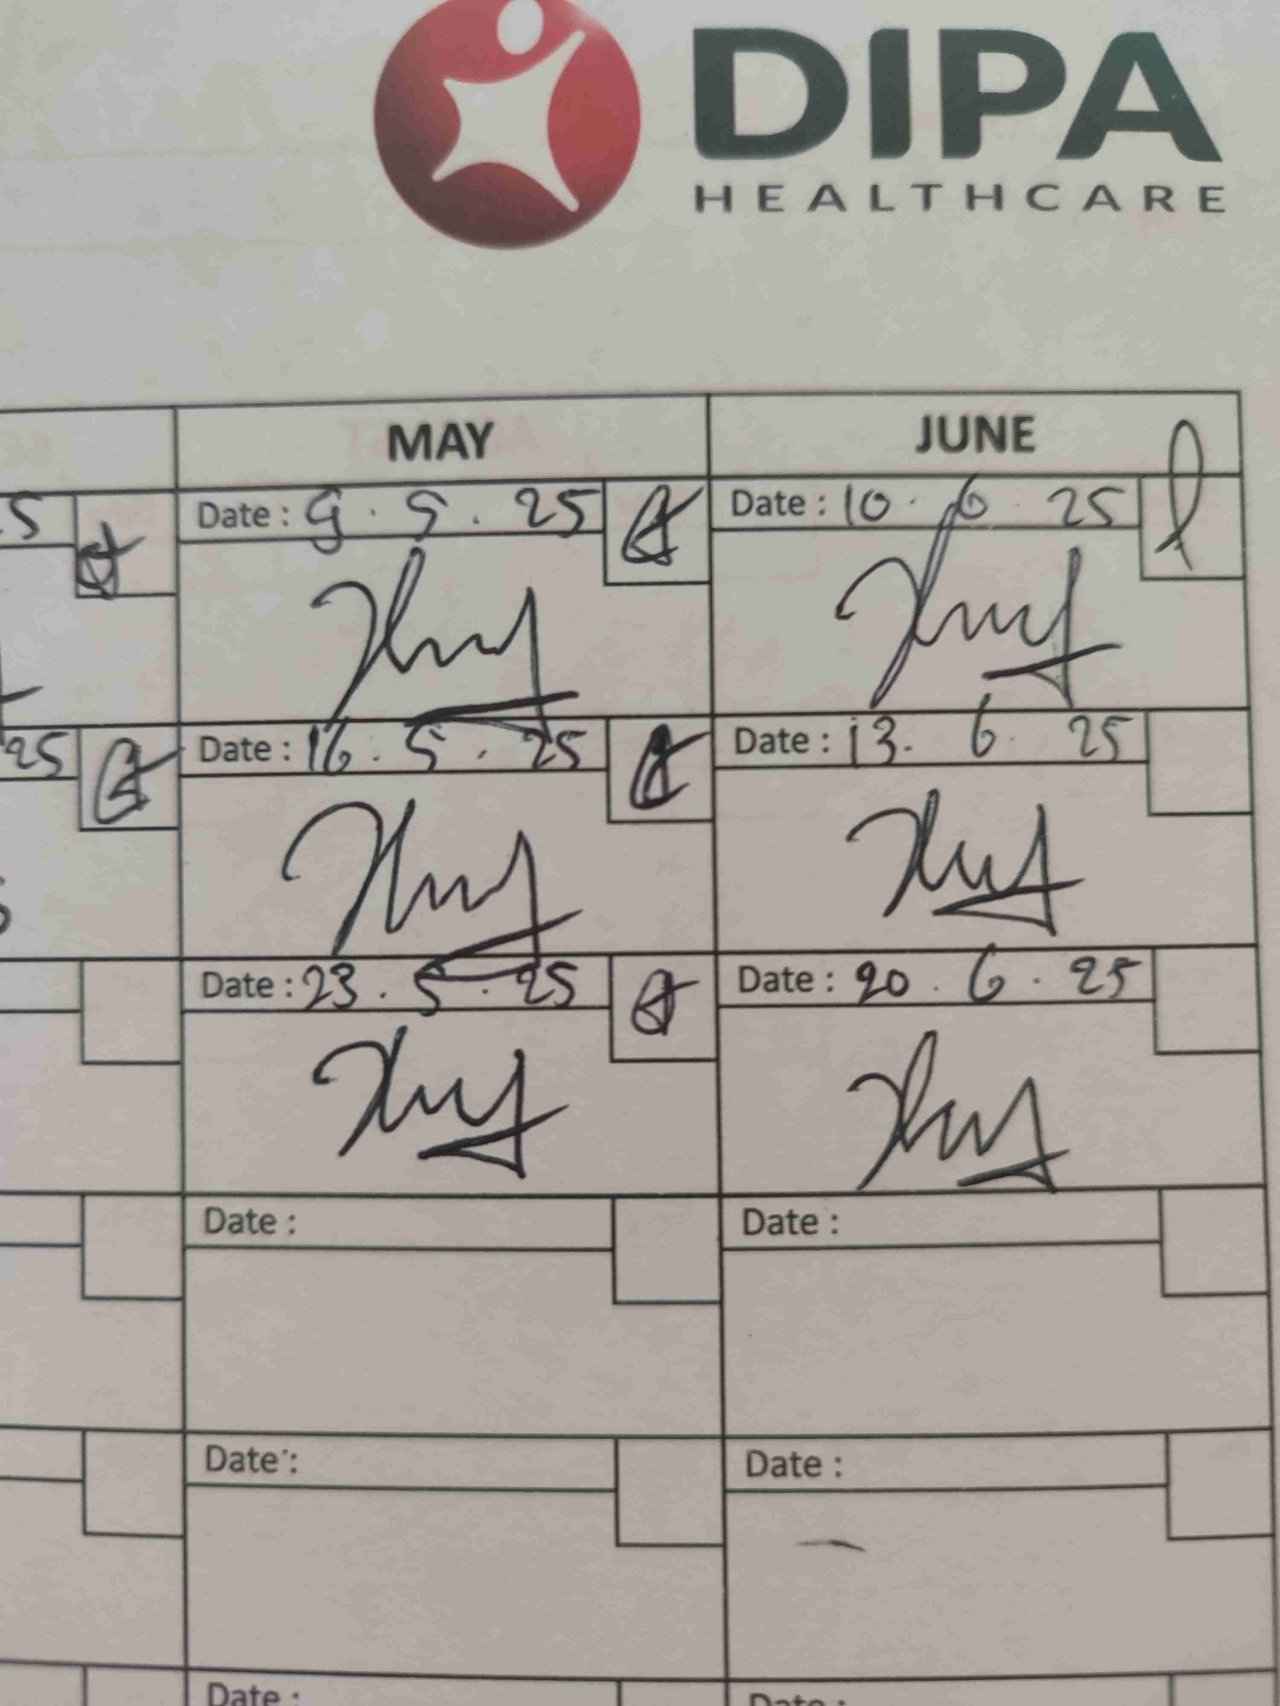 DIPA
HEALTHCARE
MAY JUNE
5 Date : 9 . 5 . 25 Date : 10 . 6 . 25
25 Date : 16 . 5 . 25 Date : 13 . 6 . 25
Date : 23 . 5 . 25 Date : 20 . 6 . 25
Date : Date :
Date : Date :
Date : Date :